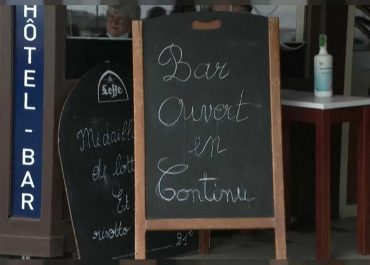 HÔTEL - BAR
Leffe
Médaill
de lotte
Et
risotto
21€
Bar
Ouvert
en
Continu